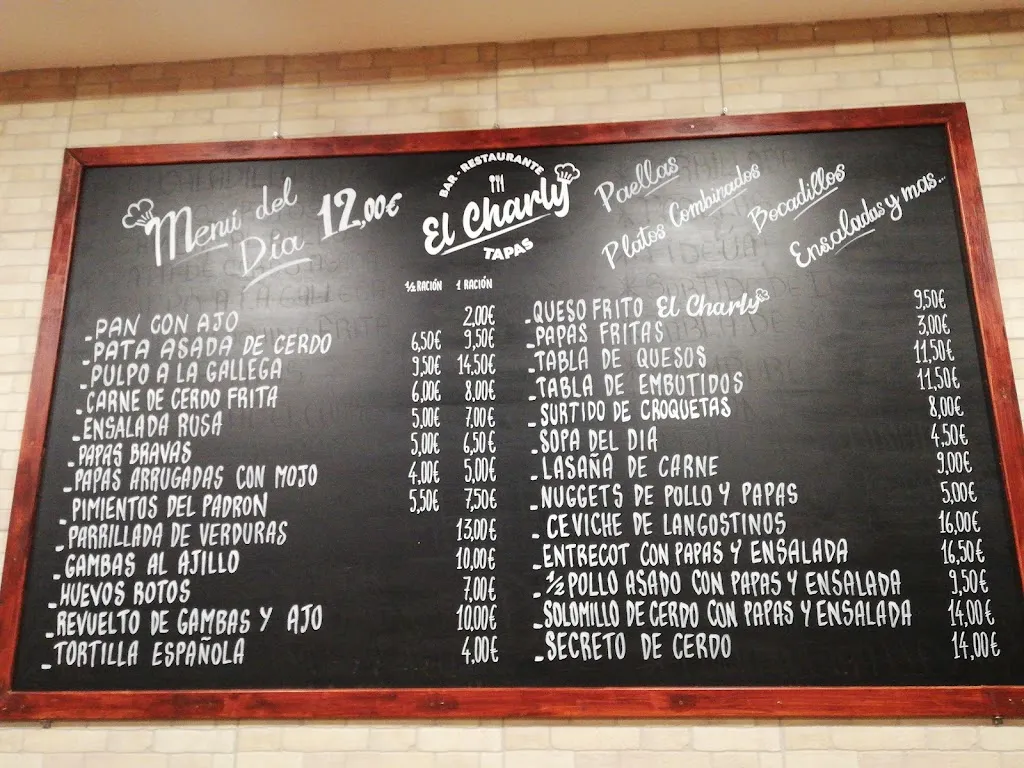 Menú del
Día 12,00€
BAR - RESTAURANTE
El Charly
TAPAS
Paellas
Platos Combinados
Bocadillos
Ensaladas y mas...
½ RACIÓN 1 RACIÓN
_PAN CON AJO 2,00€
_PATA ASADA DE CERDO 6,50€ 9,50€
_PULPO A LA GALLEGA 9,50€ 14,50€
_CARNE DE CERDO FRITA 6,00€ 8,00€
_ENSALADA RUSA 5,00€ 7,00€
_PAPAS BRAVAS 5,00€ 6,50€
_PAPAS ARRUGADAS CON MOJO 4,00€ 5,00€
_PIMIENTOS DEL PADRON 5,50€ 7,50€
_PARRILLADA DE VERDURAS 13,00€
_GAMBAS AL AJILLO 10,00€
_HUEVOS ROTOS 7,00€
_REVUELTO DE GAMBAS Y AJO 10,00€
_TORTILLA ESPAÑOLA 4,00€
_QUESO FRITO El Charly 9,50€
_PAPAS FRITAS 3,00€
_TABLA DE QUESOS 11,50€
_TABLA DE EMBUTIDOS 11,50€
_SURTIDO DE CROQUETAS 8,00€
_SOPA DEL DIA 4,50€
_LASAÑA DE CARNE 9,00€
_NUGGETS DE POLLO Y PAPAS 5,00€
_CEVICHE DE LANGOSTINOS 16,00€
_ENTRECOT CON PAPAS Y ENSALADA 16,50€
_½ POLLO ASADO CON PAPAS Y ENSALADA 9,50€
_SOLOMILLO DE CERDO CON PAPAS Y ENSALADA 14,00€
_SECRETO DE CERDO 14,00€